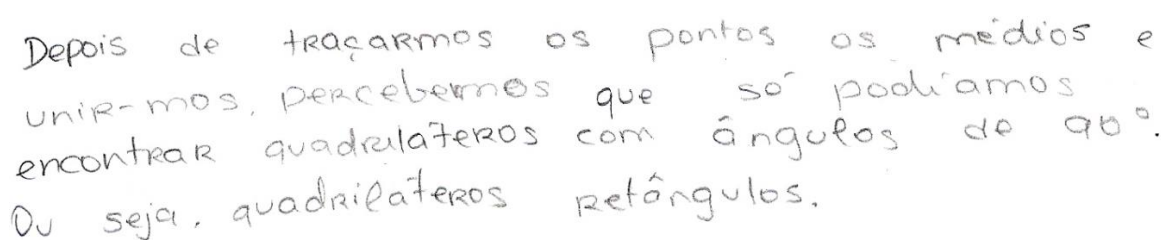 Depois de traçarmos os pontos os médios e
unir-mos, percebemos que só podíamos
encontrar quadrulateros com ângulos de 90°.
Ou seja, quadrilateros retângulos.